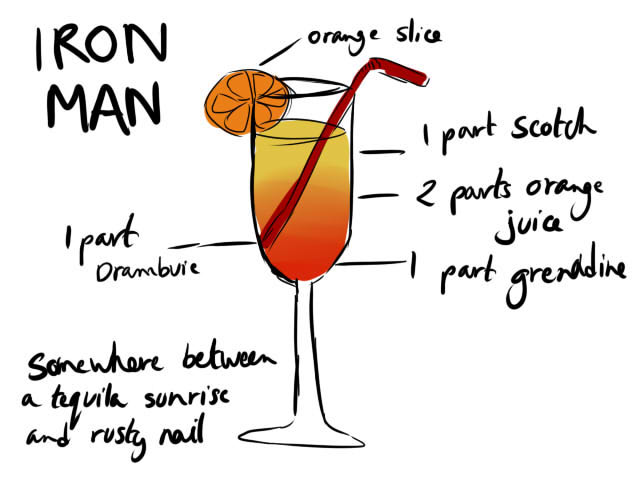 IRON
MAN
orange slice
1 part Scotch
2 parts orange
juice
1 part
Drambuie
1 part grenadine
Somewhere between
a tequila sunrise
and rusty nail